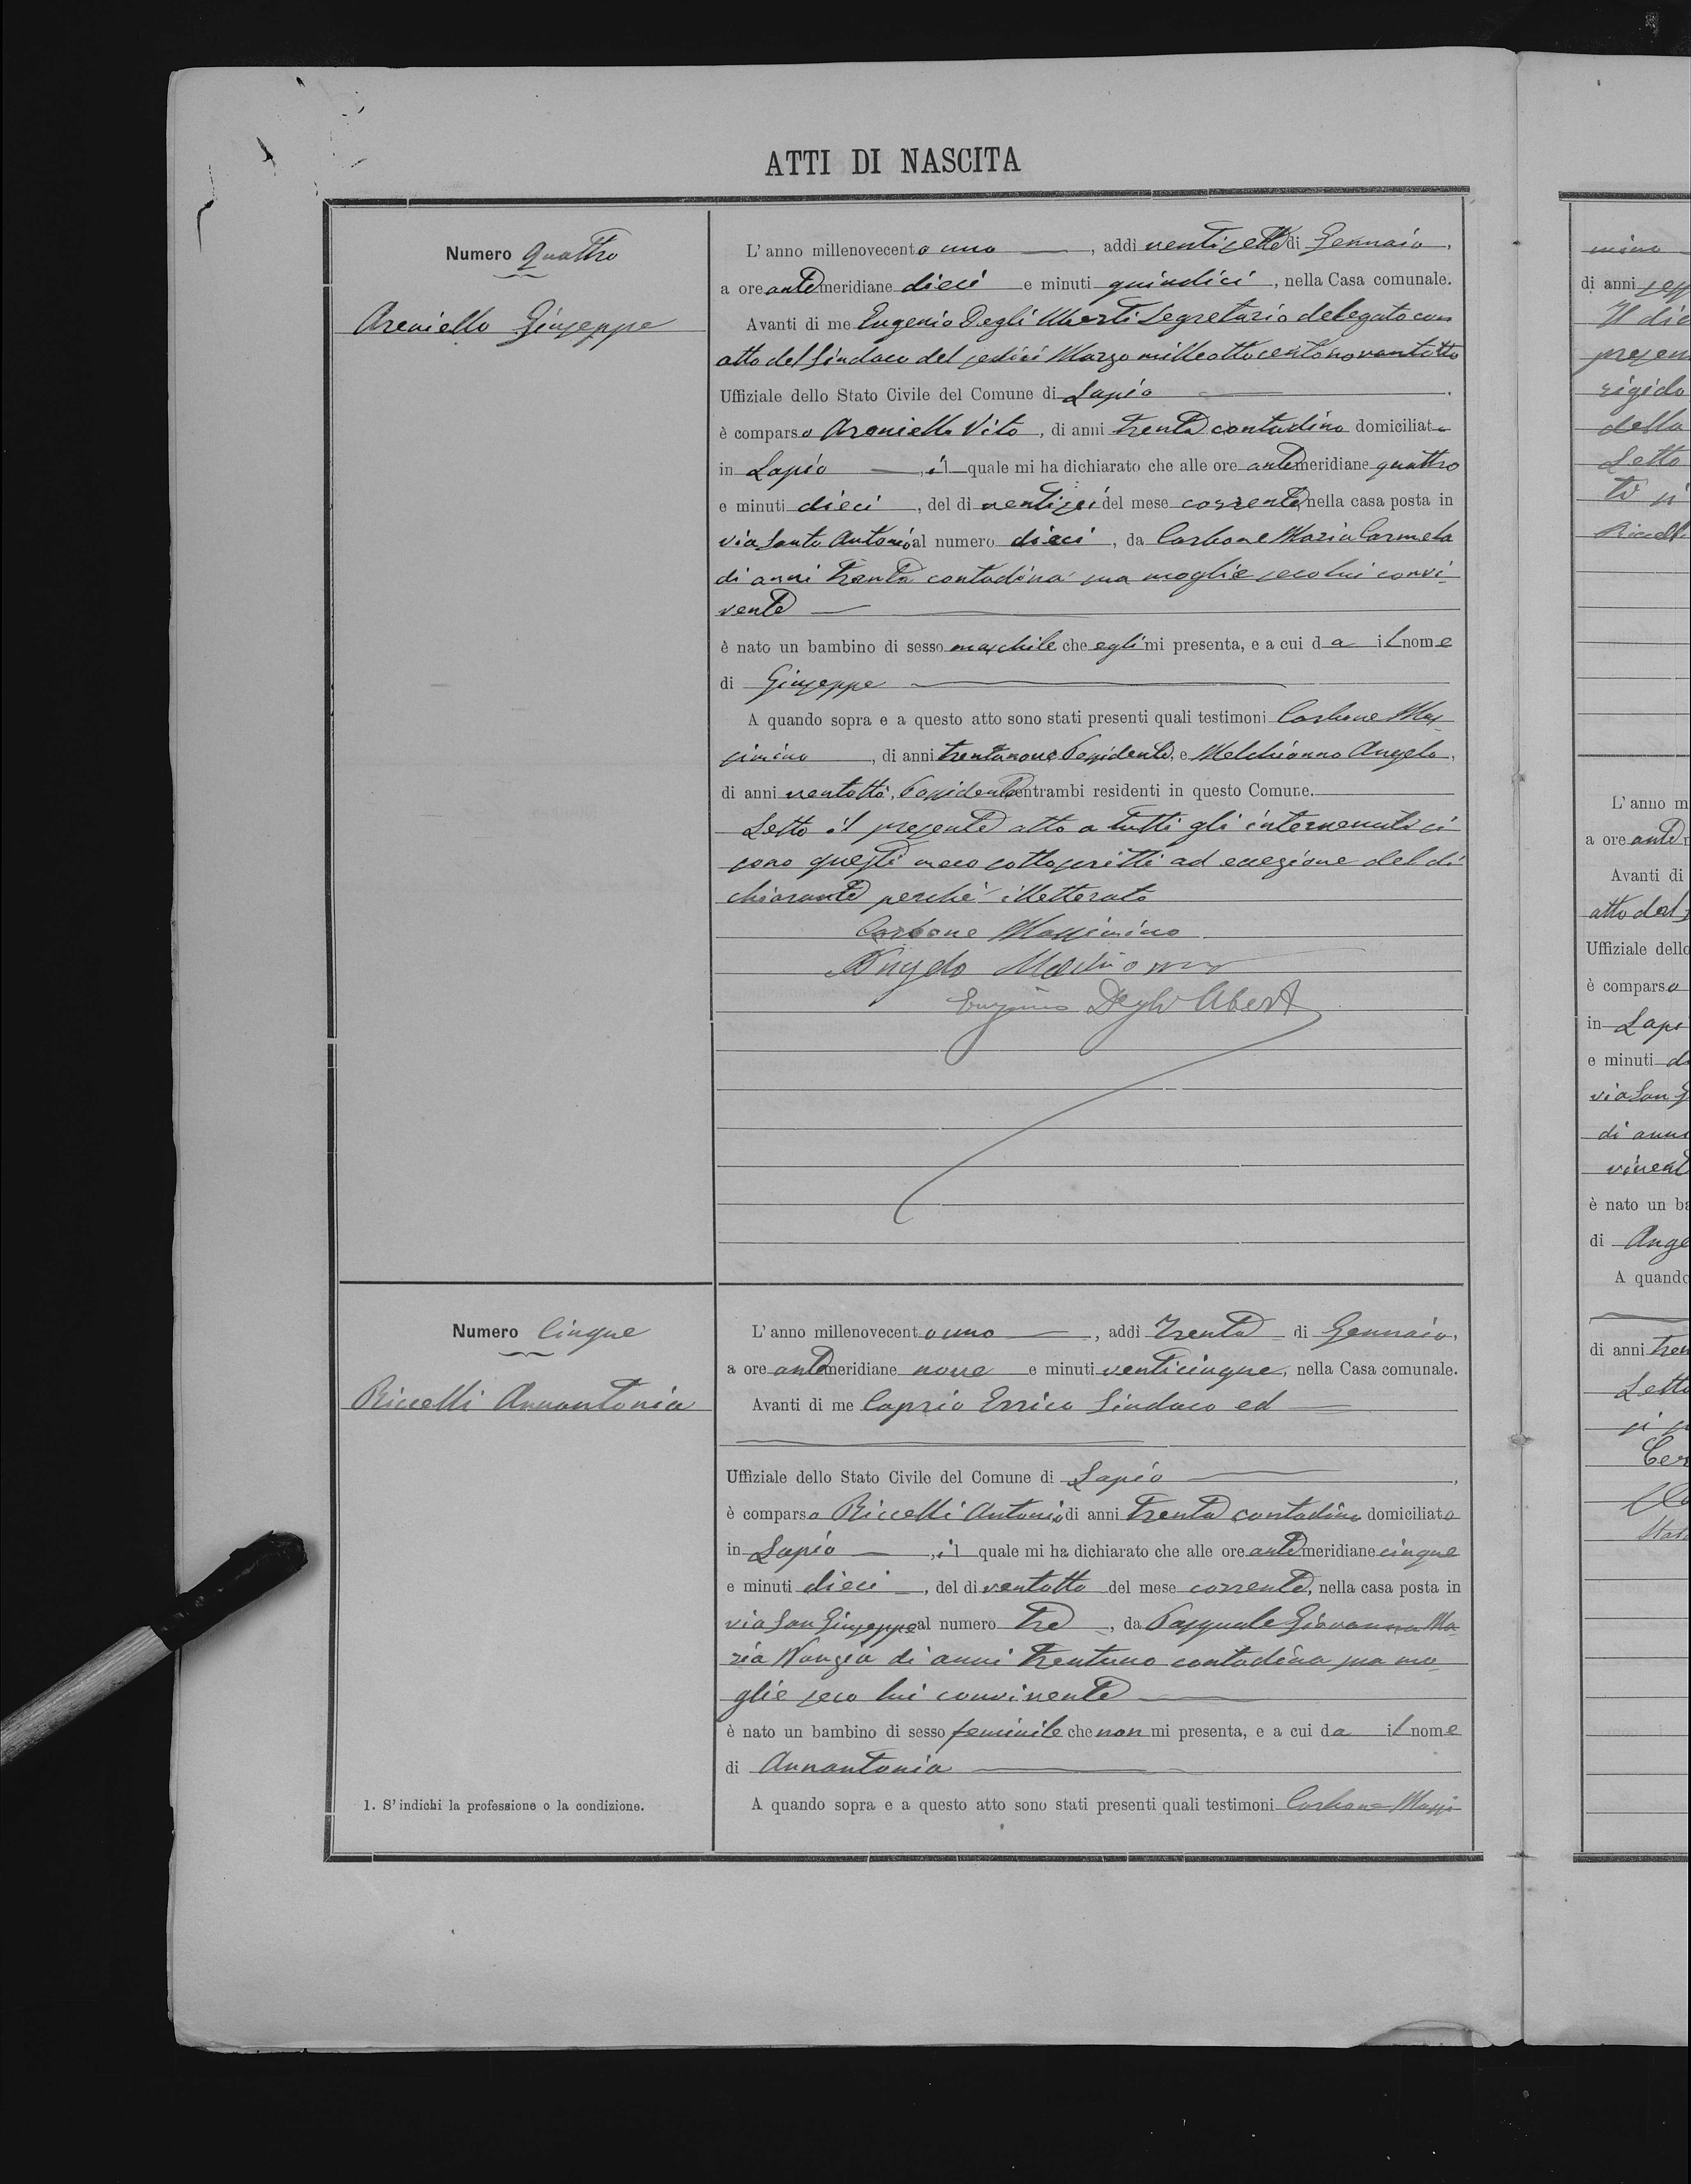 ATTI DI NASCITA
Numero Quattro
Areniello Giuseppe
L'anno millenovecento uno, addì ventisette di Gennaio,
a ore antemeridiane dieci e minuti quindici, nella Casa comunale.
Avanti di me Eugenio Degli Uberti Segretario delegato con
atto del Sindaco del sedici Marzo milleottocentonovantotto
Uffiziale dello Stato Civile del Comune di Lapio.
è comparso Areniello Vito, di anni trenta contadino domiciliato
in Lapio, il quale mi ha dichiarato che alle ore antemeridiane quattro
e minuti dieci, del dì ventisei del mese corrente, nella casa posta in
via Santo Antonio al numero dieci, da Carbone Maria Carmela
di anni trenta contadina sua moglie seco lui convi
vente
è nato un bambino di sesso maschile che egli mi presenta, e a cui da il nome
di Giuseppe
A quando sopra e a questo atto sono stati presenti quali testimoni Carbone Mas
simino, di anni trentanove, Possidente, e Melchionno Angelo,
di anni ventotto, Possidente entrambi residenti in questo Comune.
Letto il presente atto a tutti gli intervenuti si
sono questi meco sottoscritti ad eccezione del di
chiarante perchè illetterato
Carbone Massimino
Angelo Melchionno
Eugenio Degli Uberti
Numero Cinque
Riccelli Annantonia
L'anno millenovecento uno, addì trenta di Gennaio,
a ore antemeridiane nove e minuti venticinque, nella Casa comunale.
Avanti di me Caprio Errico Sindaco ed
Uffiziale dello Stato Civile del Comune di Lapio,
è comparso Riccelli Antonio di anni trenta contadino domiciliato
in Lapio, il quale mi ha dichiarato che alle ore antemeridiane cinque
e minuti dieci, del dì ventotto del mese corrente, nella casa posta in
via San Giuseppe al numero tre, da Pasquale Giovanna Ma
ria Nunzia di anni trentuno contadina sua mo
glie seco lui convivente
è nato un bambino di sesso feminile che non mi presenta, e a cui da il nome
di Annantonia
A quando sopra e a questo atto sono stati presenti quali testimoni Carbone Massi
1. S'indichi la professione o la condizione.
mino
di anni
Il dic
presen
rigido
della
Letto
ti si
Riccelli
L'anno m
a ore ante
Avanti di
atto del
Uffiziale dello
è comparso
in Lapi
e minuti
via San
di anni
vivent
è nato un ba
di Ange
A quando
di anni tren
Letto